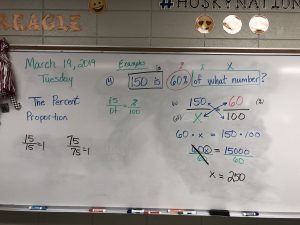 #HUSKYNATION
March 19, 2019
Tuesday
The Percent
Proportion
15/15 = 1
75/75 = 1
Examples
is % x
150 is 60% of what number?
is/of = %/100
(is) 150 60 (%)
(of) x 100
60 · x = 150 · 100
60x = 15000
60 60
x = 250